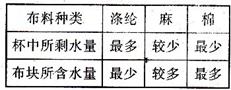 布料种类 涤纶 麻 棉
杯中所剩水量 最多 较少 最少
布块所含水量 最少 较多 最多